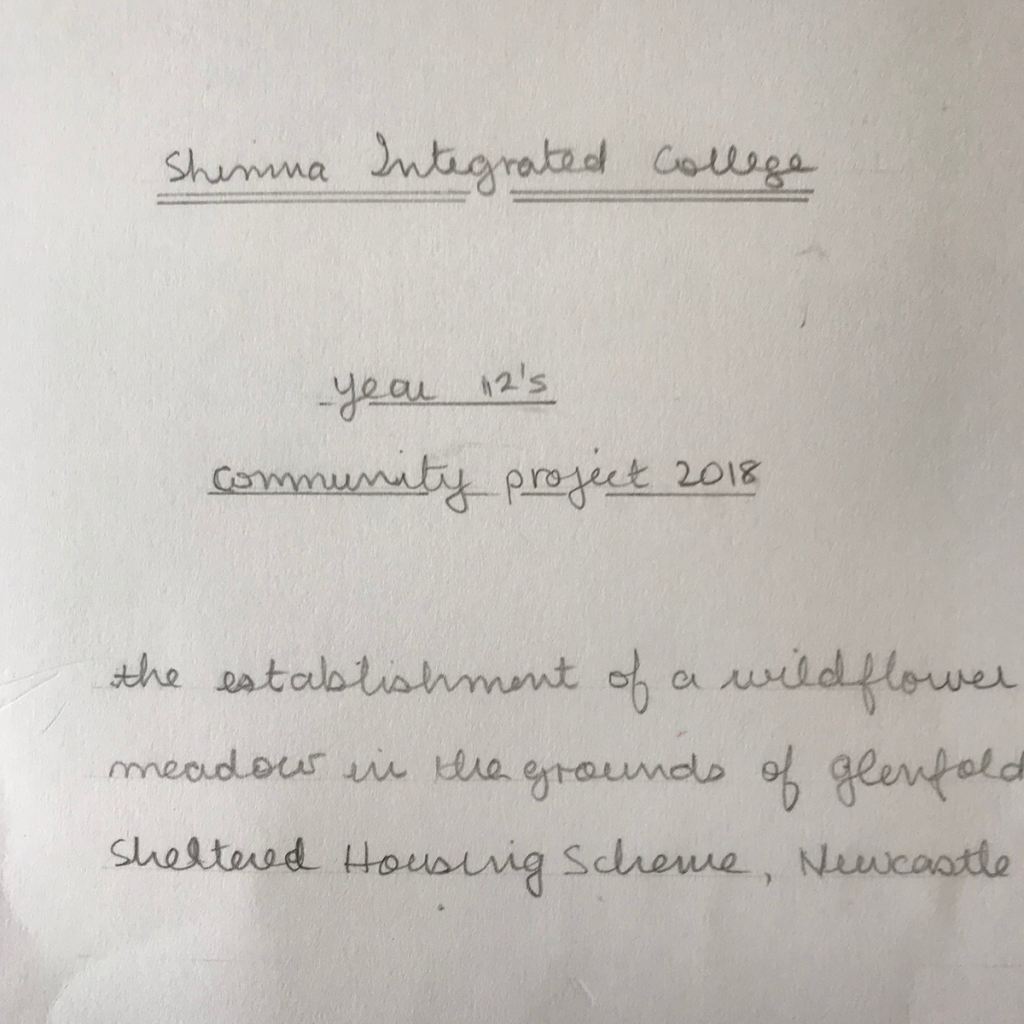 Shimna Integrated College
Year 12's
Community project 2018
the establishment of a wildflower
meadow in the grounds of glenfold
Sheltered Housing Scheme, Newcastle